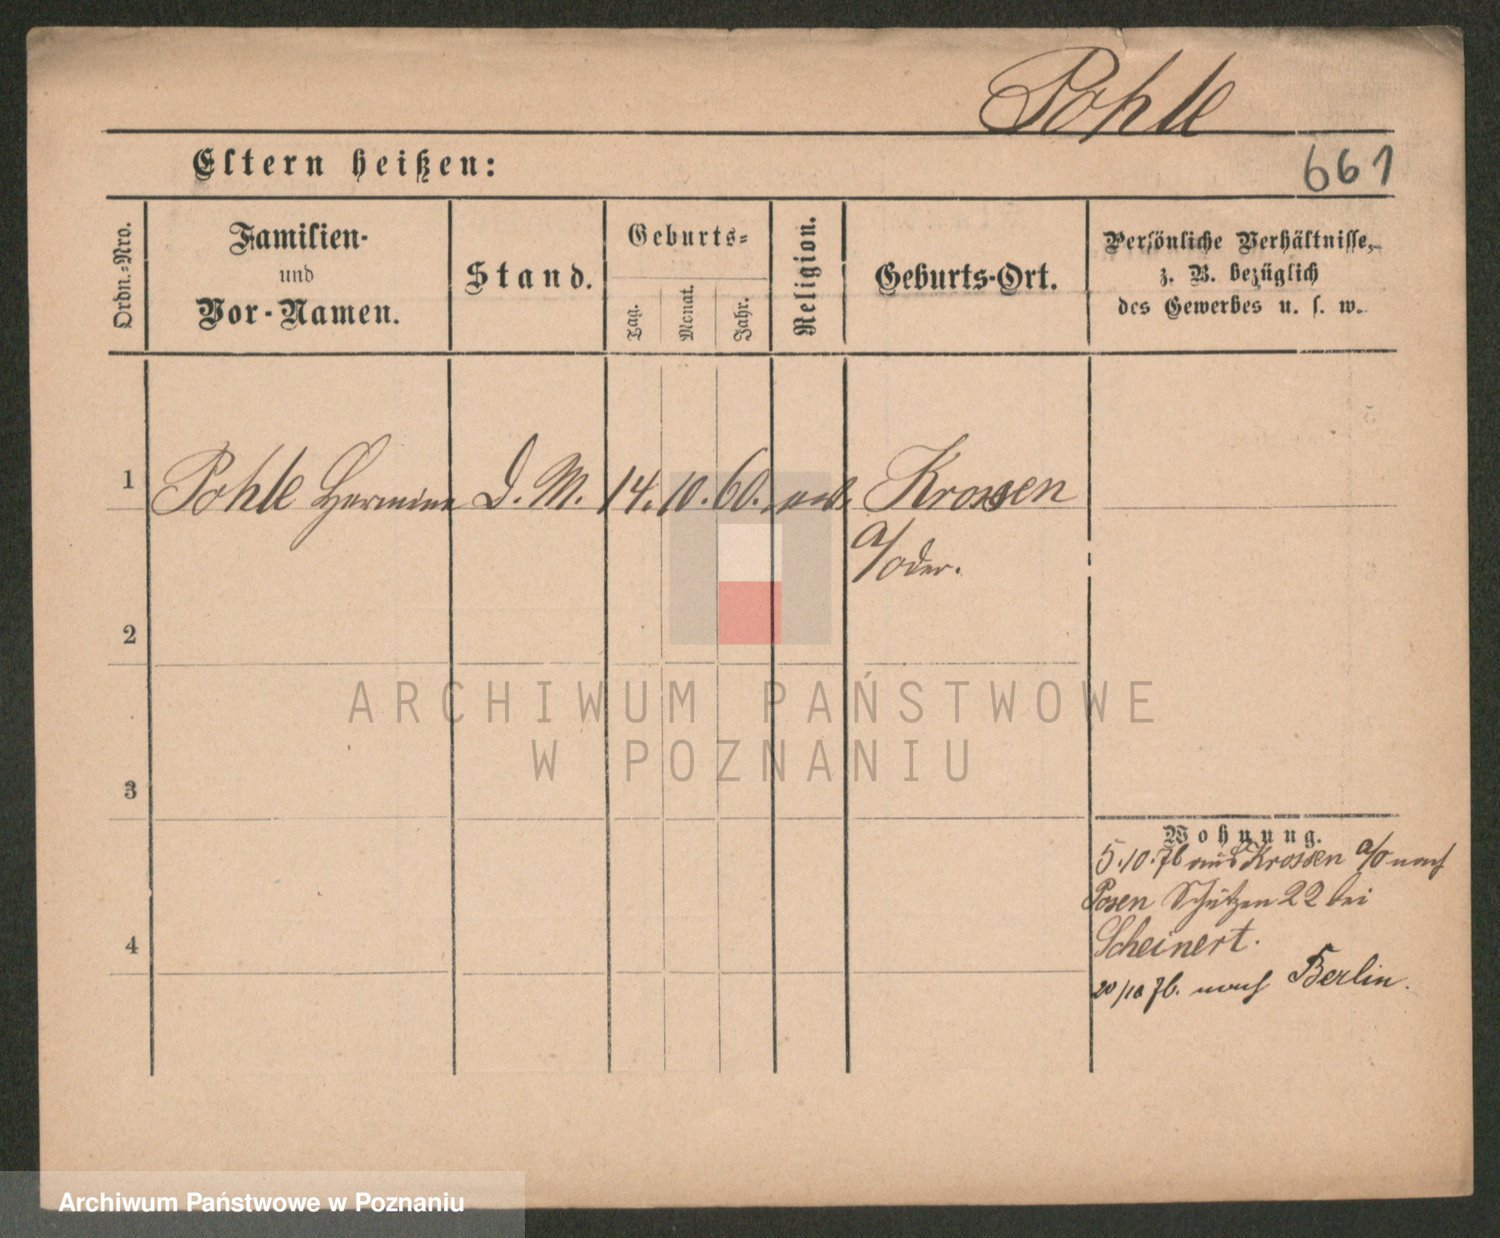 Pohle
Eltern heißen:
661
Ordn.-Nro.
Familien-
und
Vor-Namen.
Stand.
Geburts-
Tag.
Monat.
Jahr.
Religion.
Geburts-Ort.
Persönliche Verhältnisse,
z. B. bezüglich
des Gewerbes u. s. w.
1
Pohle Hermine D. M. 14. 10. 60. Krossen
a/Oder.
2
ARCHIWUM PAŃSTWOWE
W POZNANIU
3
Wohnung.
5.10.76 aus Krossen a/O nach
Posen Schützen 22 bei
4
Scheinert.
20/10 76. nach Berlin.
Archiwum Państwowe w Poznaniu